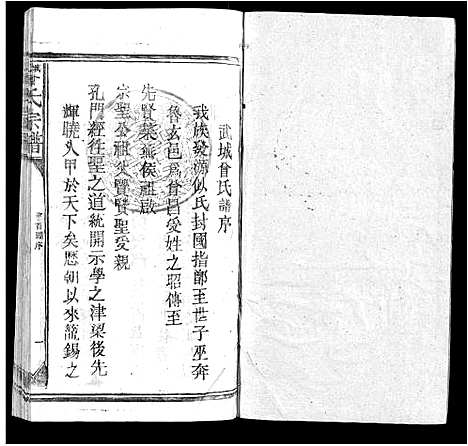 武城曾氏譜序
我族發源似氏封國指鄫至世子巫奔
魯去邑為曾因受姓之昭傳至
先賢萊蕪侯祖啟
宗聖公祖父賢聖受親
孔門經往聖之道統開示學之津望後先
輝曉人甲於天下矣歷朝以來寵錫之
城曾氏宗譜
卷首 譜序
一